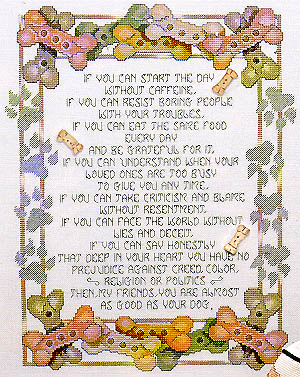 IF YOU CAN START THE DAY
WITHOUT CAFFEINE,
IF YOU CAN RESIST BORING PEOPLE
WITH YOUR TROUBLES,
IF YOU CAN EAT THE SAME FOOD
EVERY DAY
AND BE GRATEFUL FOR IT,
IF YOU CAN UNDERSTAND WHEN YOUR
LOVED ONES ARE TOO BUSY
TO GIVE YOU ANY TIME,
IF YOU CAN TAKE CRITICISM AND BLAME
WITHOUT RESENTMENT,
IF YOU CAN FACE THE WORLD WITHOUT
LIES AND DECEIT,
IF YOU CAN SAY HONESTLY
THAT DEEP IN YOUR HEART YOU HAVE NO
PREJUDICE AGAINST CREED, COLOR,
RELIGION OR POLITICS
THEN, MY FRIENDS, YOU ARE ALMOST
AS GOOD AS YOUR DOG.